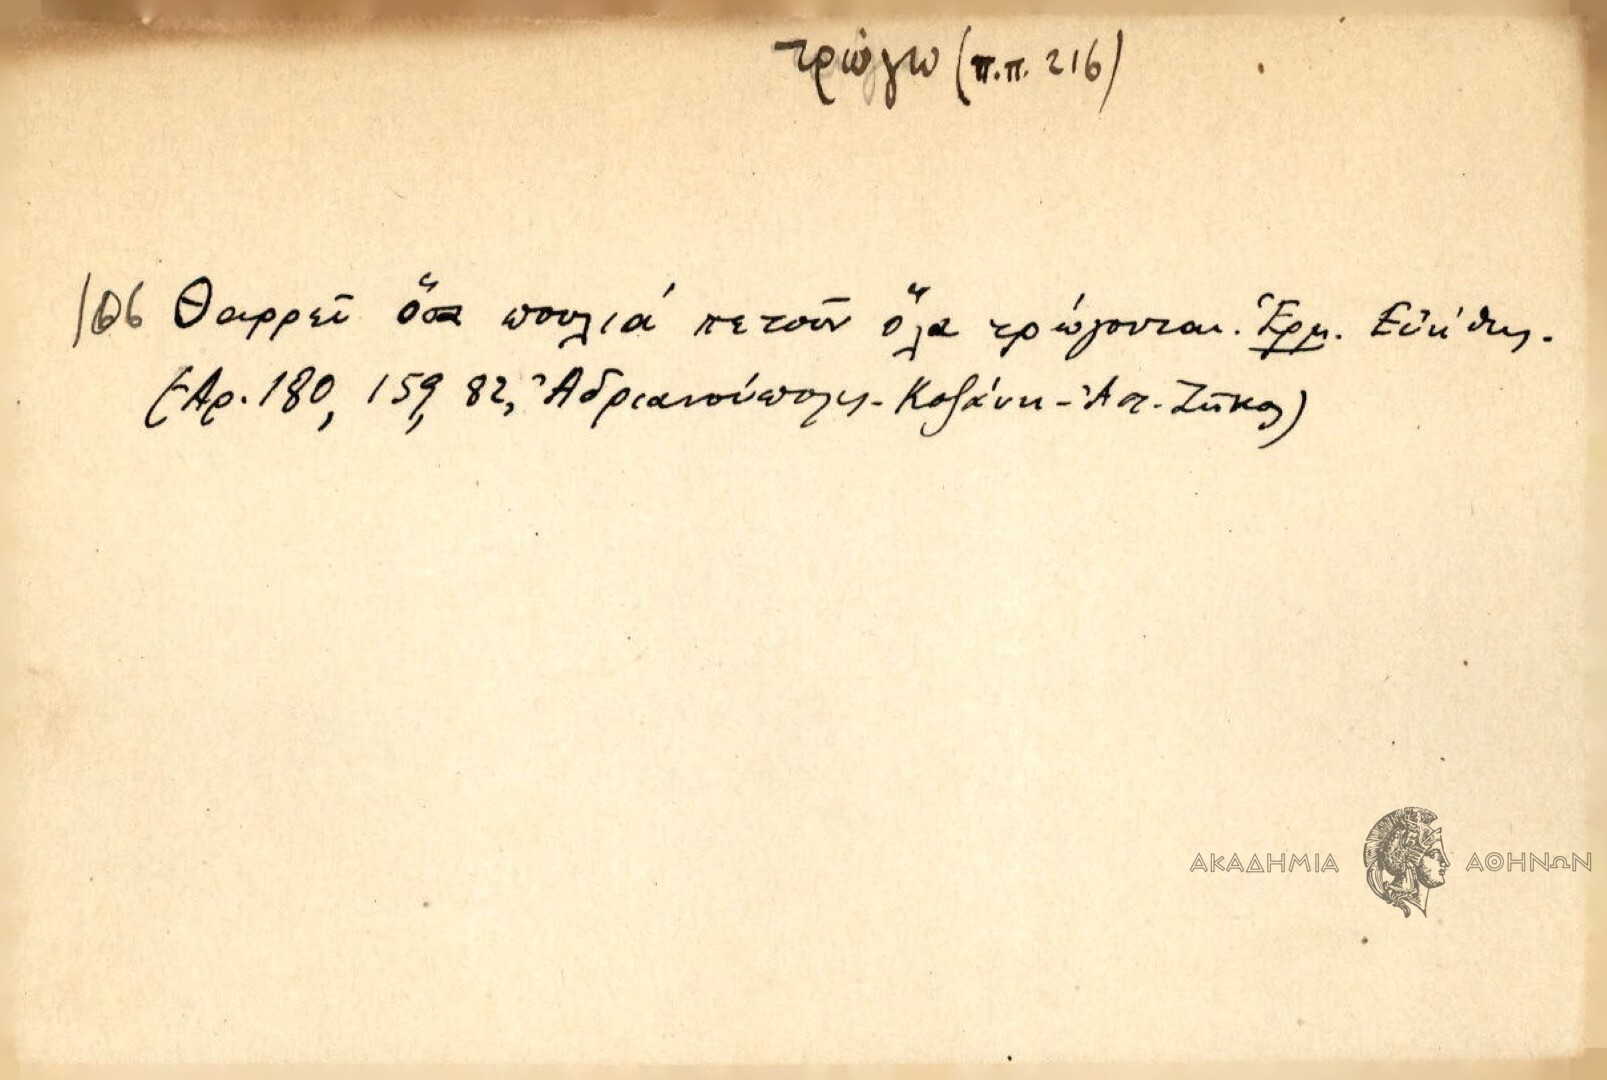 τρώγω (π.π. 216)
166 Θαρρεῖ ὅσα πουλιά πετοῦν ὅλα τρώγονται. Ἑρμ. Εὐήθης.
(Ἀρ. 180, 159, 82, Ἀδριανούπολις - Κοζάνη - Ἀστ. Ζῆκος)
ΑΚΑΔΗΜΙΑ ΑΘΗΝΩΝ